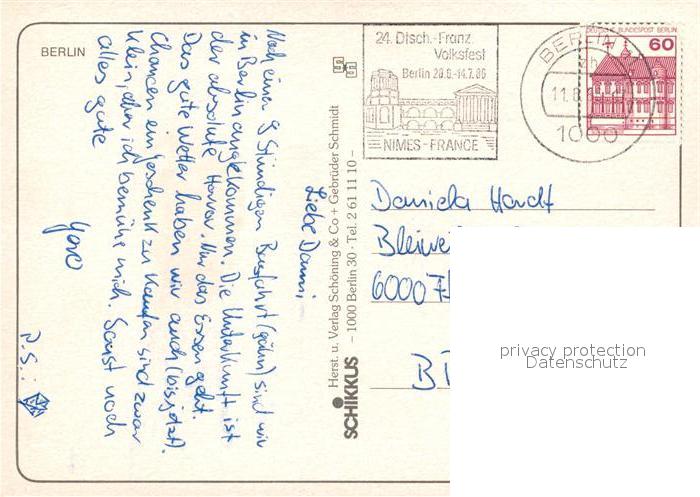 BERLIN
Liebe Danni,
Nach einer 9 Stündigen Busfahrt (gähn) sind wir
in Berlin angekommen. Die Unterkunft ist
der absolute Horror. Nur das Essen geht.
Das gute Wetter haben wir auch (bis jetzt).
Chancen ein Geschenk zu kaufen sind zwar
klein, aber ich bemühe mich. Sonst noch
alles gute
P.S.:
SCHIKKUS
Herst. u. Verlag Schöning & Co + Gebrüder Schmidt
– 1000 Berlin 30 · Tel. 2 61 11 10 –
24. Dtsch.-Franz.
Volksfest
Berlin 20.6.-14.7.86
NIMES-FRANCE
BERLIN
zh
11.6.
1000
DEUTSCHE BUNDESPOST BERLIN
60
Daniela Hardt
6000
privacy protection
Datenschutz